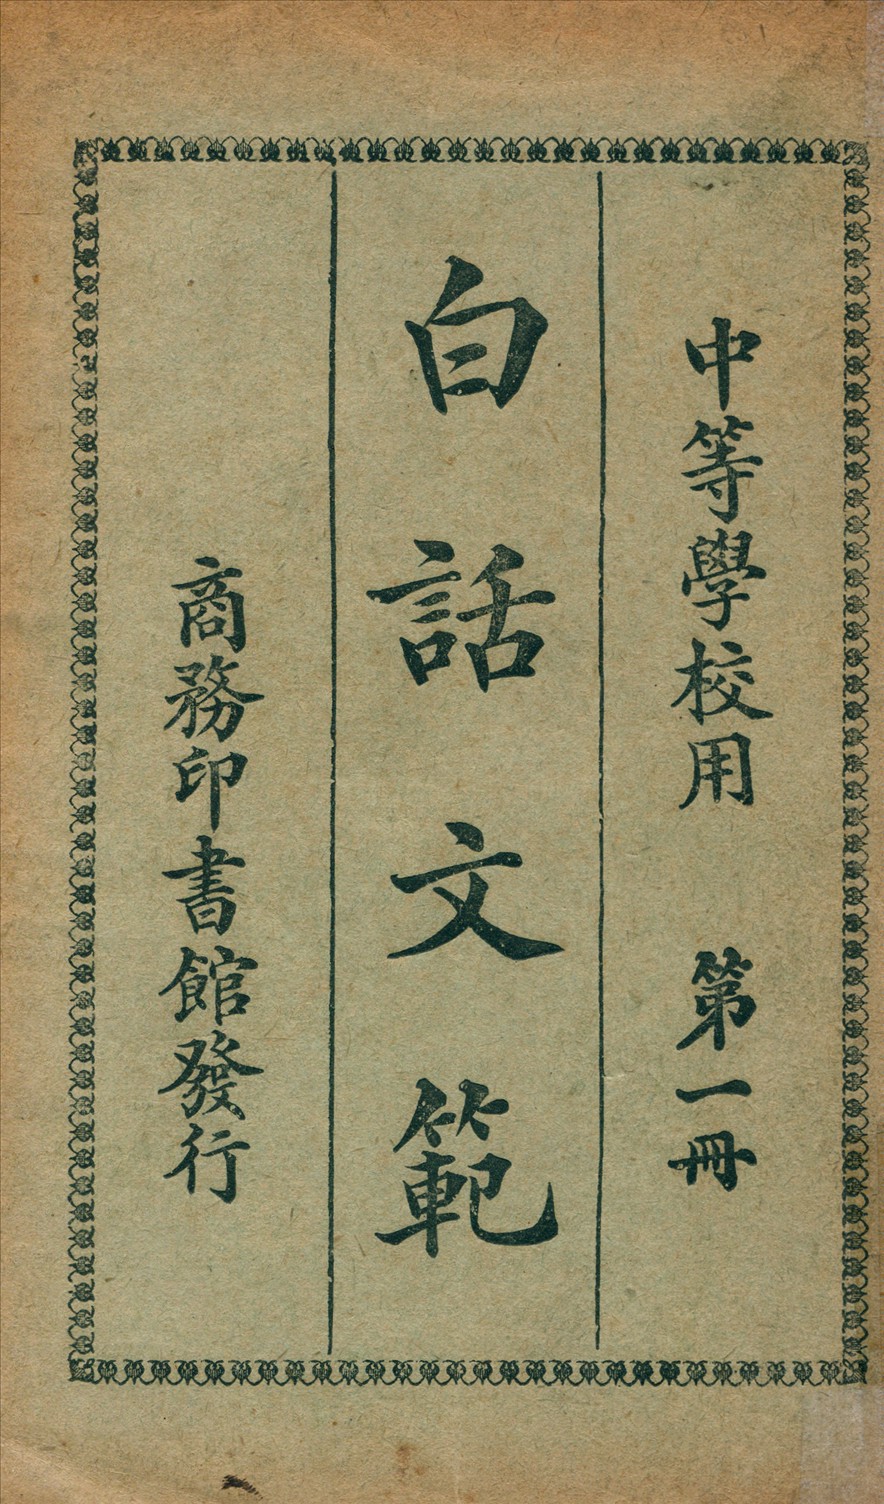 中等學校用　第一冊
白話文範
商務印書館發行